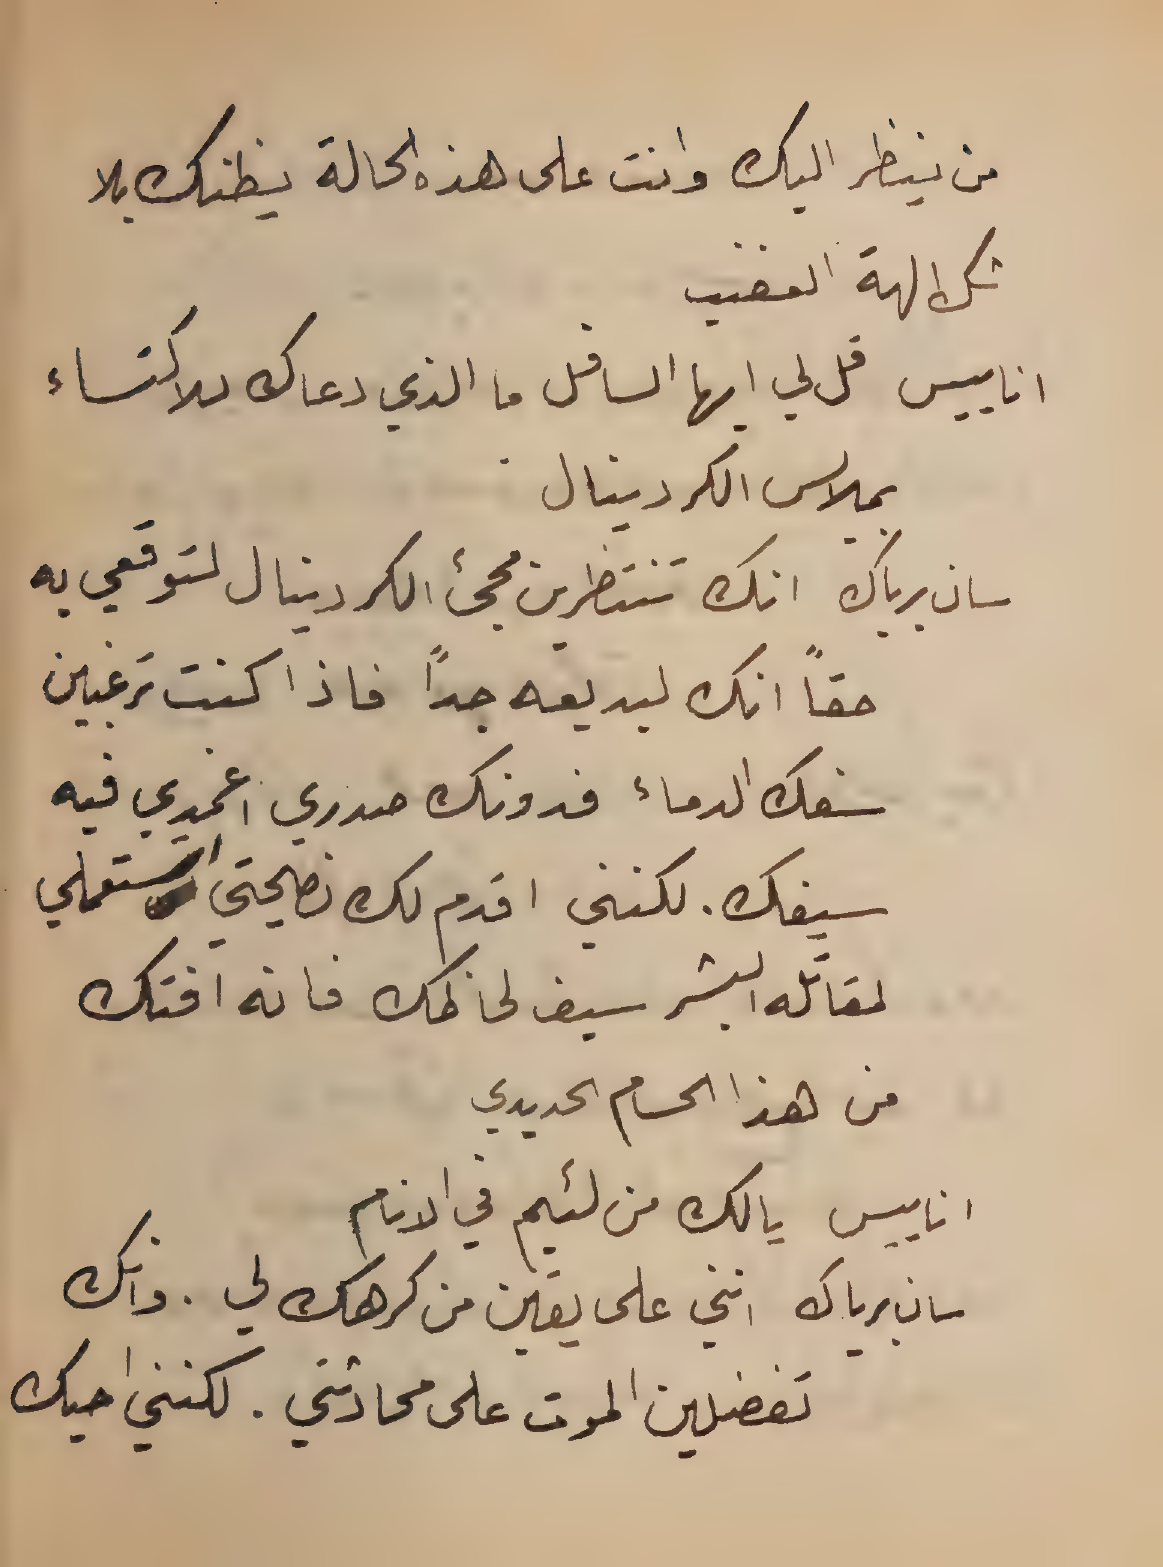 من ينظر اليك وانت على هذه الحالة يظنك بلا
شك الهة الغضب
اناييس قل لي ايها السافل ما الذي دعاك للاكتساء
بملابس الكردينال
سان برياك انك تنتظرين مجئ الكردينال لتوقعي به
حقاً انك لبديعه جداً فاذا كنت ترغبين
سفك الدماء فدونك صدري اغمدي فيه
سيفك. لكنني اقدم لك نصيحتي استعملي
لمقاتله البشر سيف لحاظك فانه افتك
من هذا الحسام الحديدي
اناييس يالك من لئيم في الانام
سان برياك انني على يقين من كرهك لي. وانك
تفضلين الموت على محادثتي. لكنني احبك